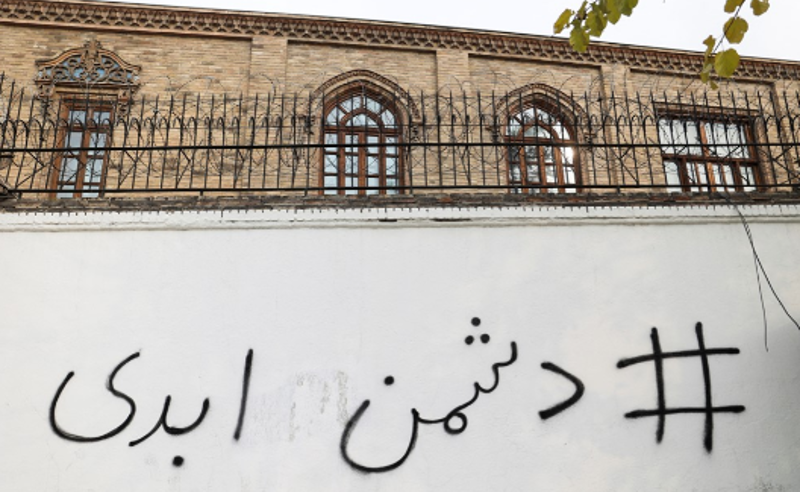 #دشمن ابدی